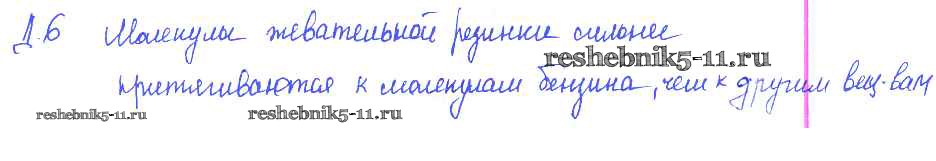 Д.6 Молекулы жевательной резинки сильнее
reshebnik5-11.ru
притягиваются к молекулам бензина, чем к другим вещ-вам
reshebnik5-11.ru reshebnik5-11.ru